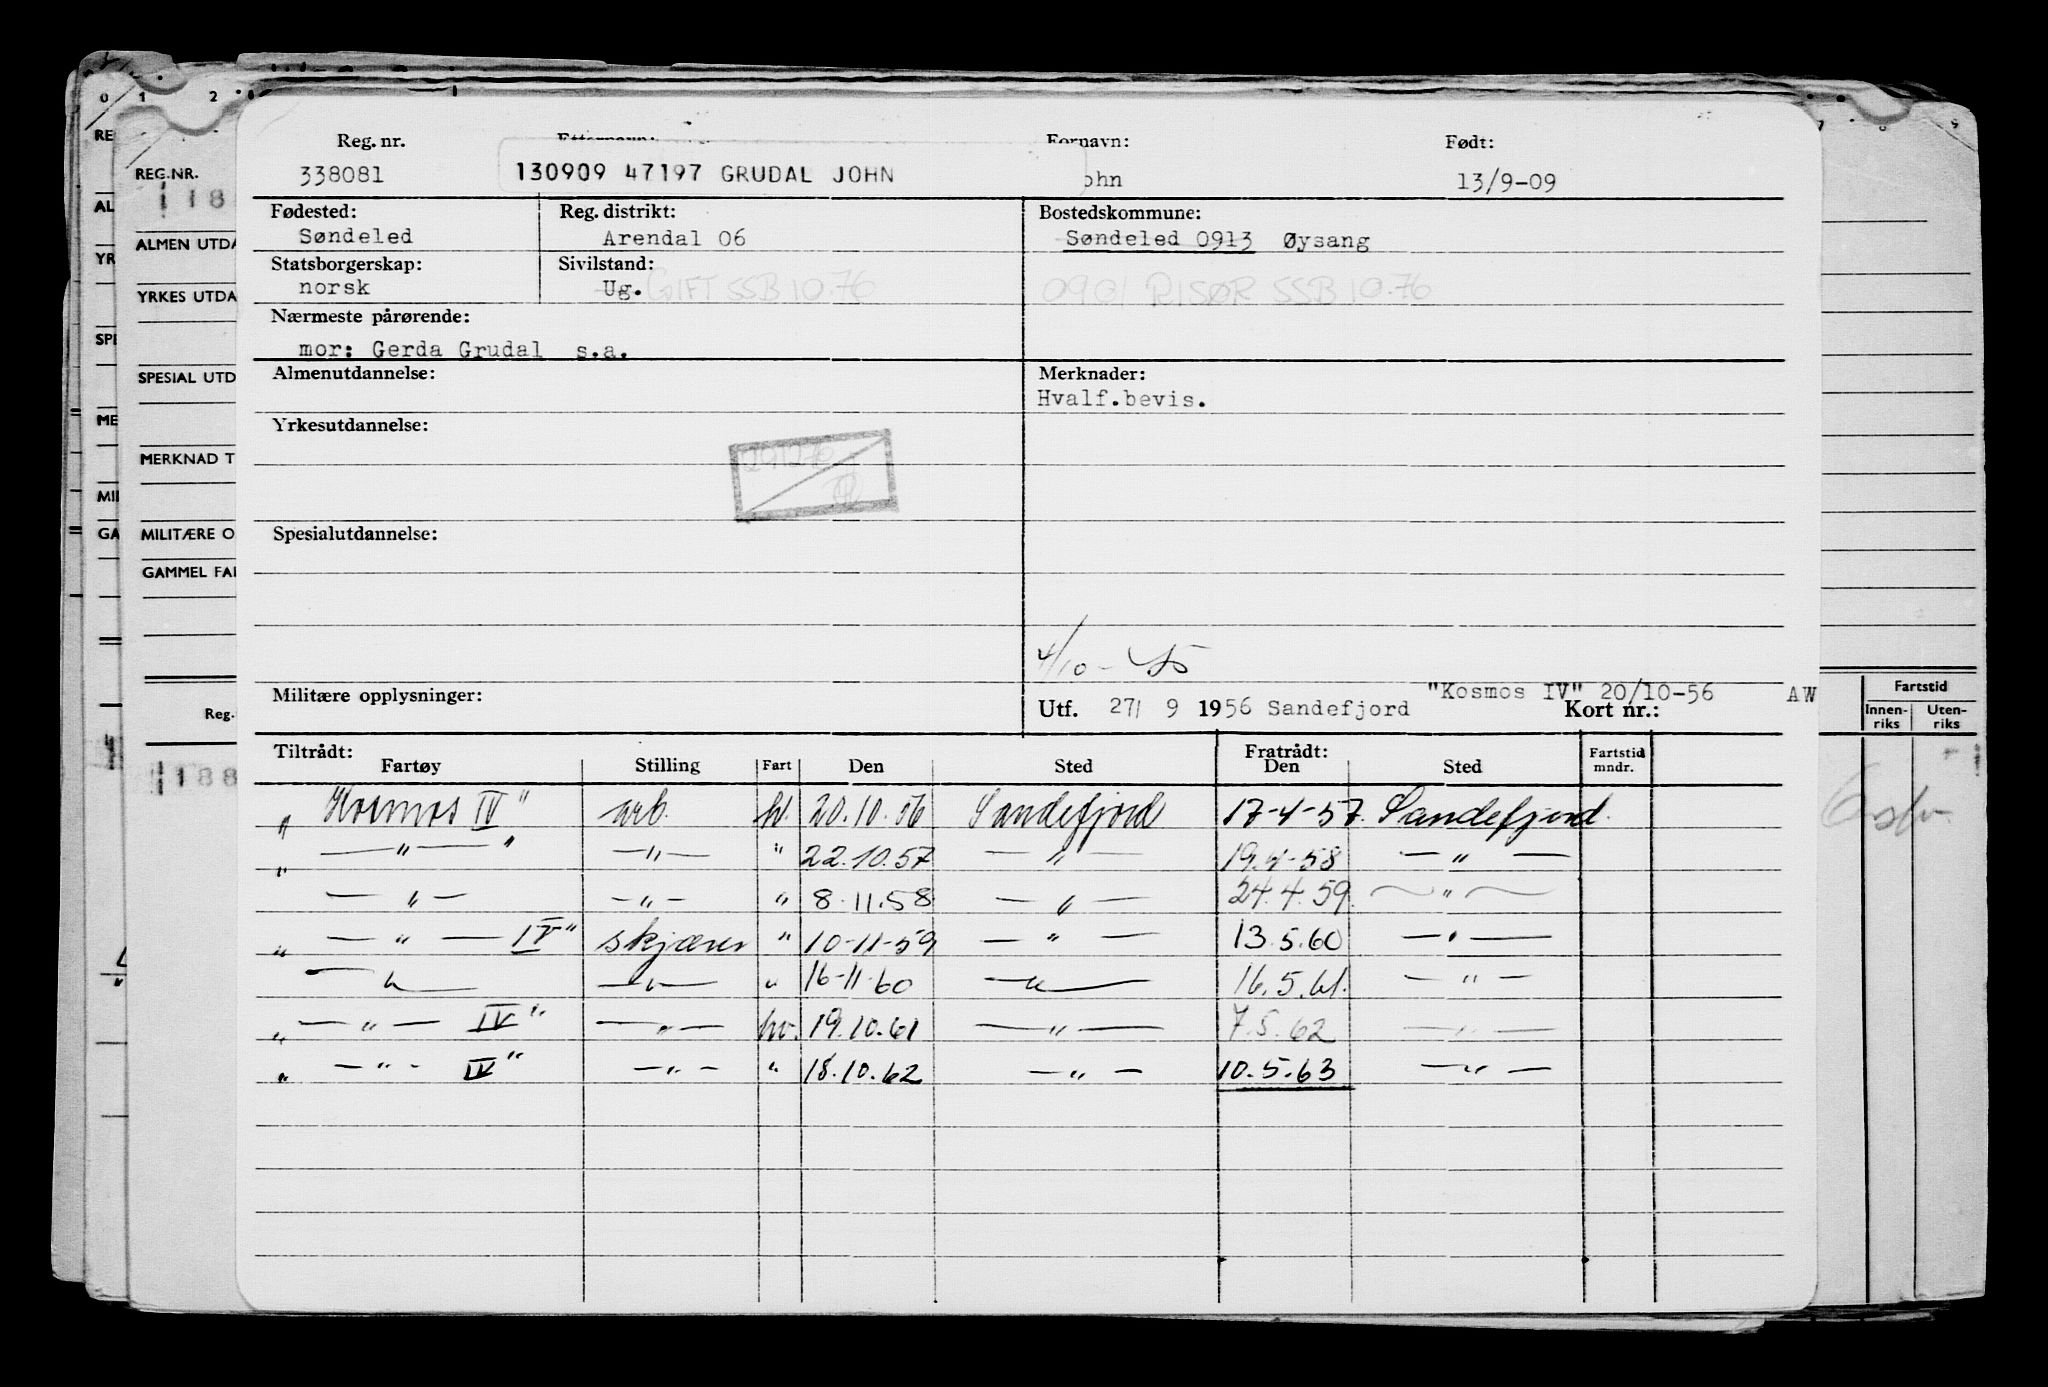 Reg. nr. Etternavn: Fornavn: Født:
338081 130909 47197 GRUDAL JOHN ohn 13/9-09
Fødested: Reg. distrikt: Bostedskommune:
Søndeled Arendal 06 Søndeled 0913 Øysang
Statsborgerskap: Sivilstand:
norsk Ug. GIFT SSB 10.76 0901 RISØR SSB 10.76
Nærmeste pårørende:
mor: Gerda Grudal s.a.
Almenutdannelse: Merknader:
Hvalf.bevis.
Yrkesutdannelse:
Spesialutdannelse:
4/10-
Militære opplysninger: "Kosmos IV" 20/10-56 AW
Utf. 27/ 9 1956 Sandefjord Kort nr.:
Tiltrådt: Fratrådt:
Fartøy Stilling Fart Den Sted Den Sted Fartstid mndr.
„ Kosmos IV" arb. hv. 20.10.56 Sandefjord 17-4-57. Sandefjord.
„ — " — " — " — " 22.10.57 — " — 19.4-58 — " —
— " — — " — " 8.11.58 — " — 24.4.59. — " —
„ — " — IV" skjærer " 10-11-59 — " — 13.5.60 — " —
— " — — " — " 16-11-60 — " — 16.5.61. — " —
„ — " — IV" — " — hv. 19.10.61 — " — 7.5.62 — " —
„ — " - IV" — " — " 18.10.62 — " — 10.5.63 — " —
0 1 2 7 8 9
RE
AL
YR
SPE
ME
MI
GA
REG.NR.
188
ALMEN UTDA
YRKES UTDA
SPESIAL UTD
MERKNAD T
MILITÆRE O
GAMMEL FAR
Reg.
188
Fartstid
Innen-riks Uten-riks